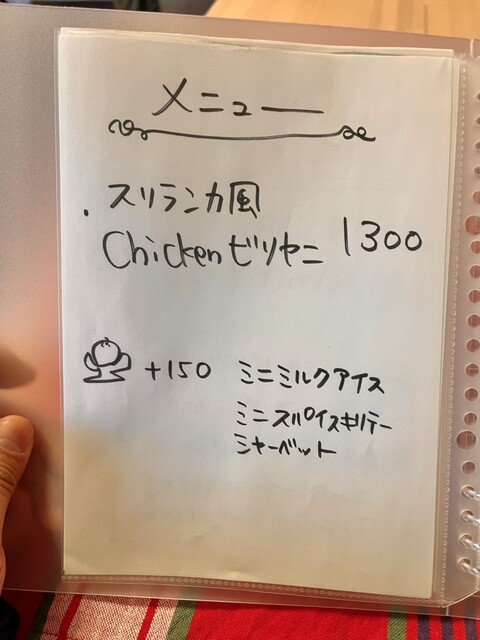 メニュー
・スリランカ風
Chickenビリヤニ 1300
+150 ミニミルクアイス
ミニスパイスキリテー
シャーベット